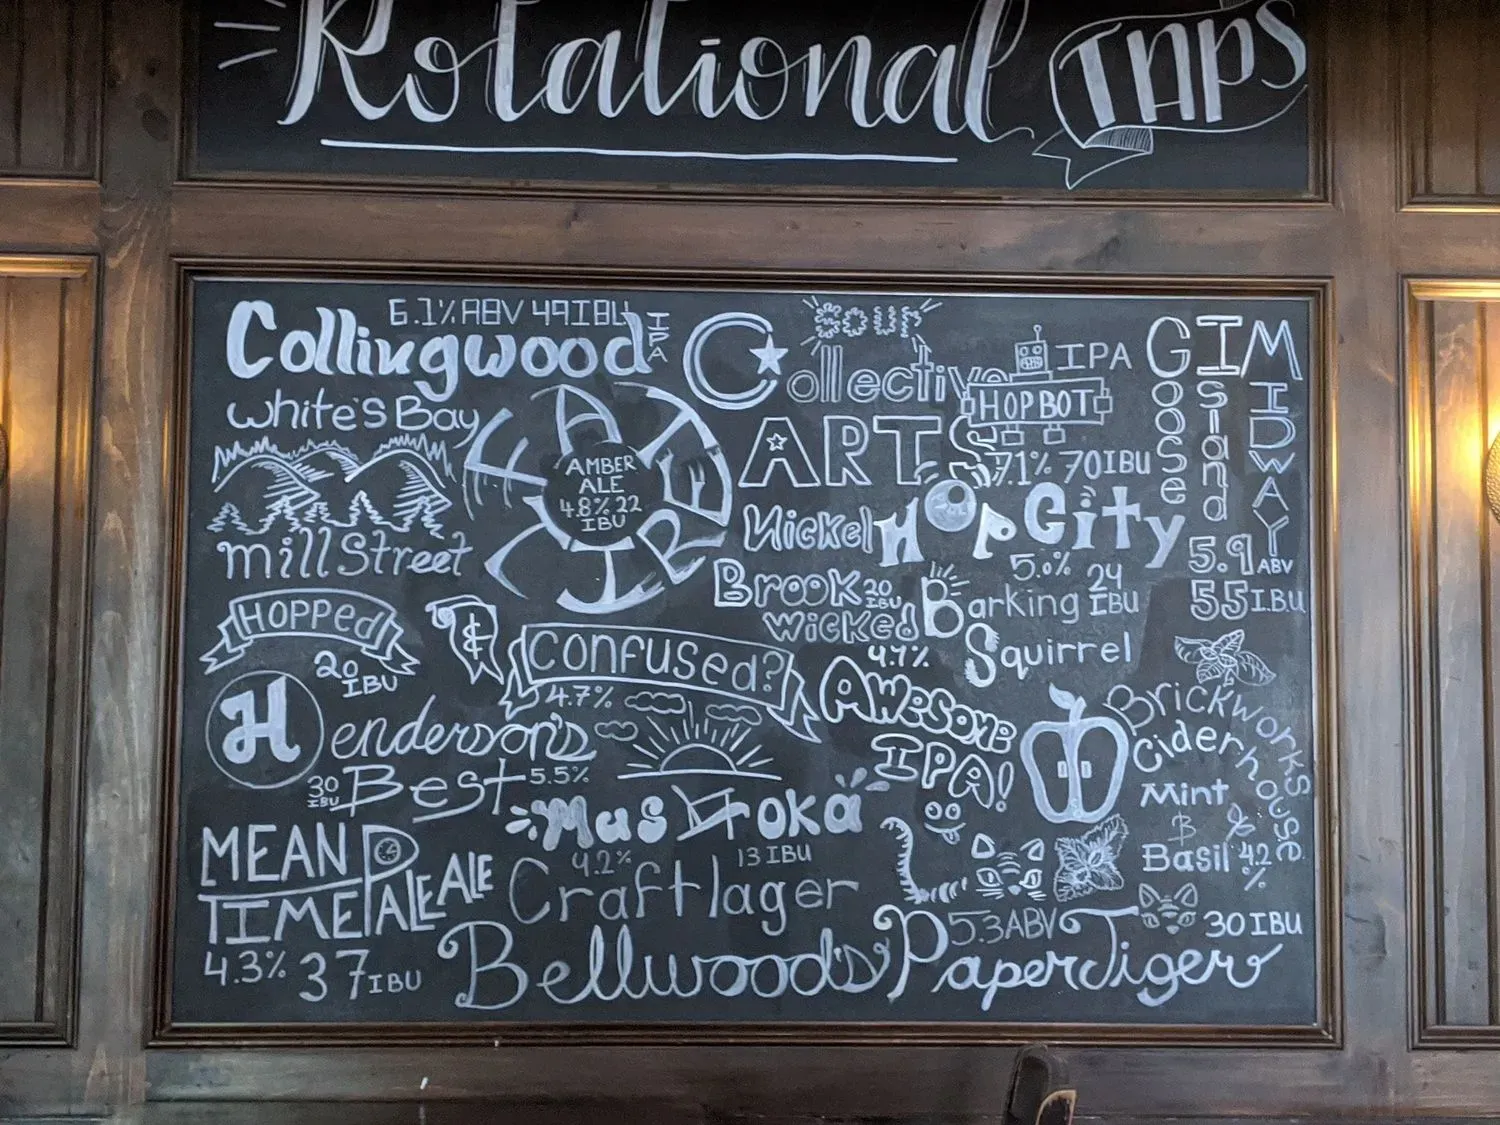 Rotational TAPS
6.1% ABV 49 IBU
Collingwood IPA
White's Bay
Mill Street
AMBER
ALE
4.8% 22
IBU
Collective
ARTS
IPA
HOPBOT
7.1% 70 IBU
GIM
Goose
Island
MIDWAY
5.9 ABV
55 I.B.U
Nickel
Brook 20
IBU
Wicked
Awesome
IPA!
4.7%
Hop City
5.0% 24
IBU
Barking
Squirrel
HOPPED
&
CONFUSED?
20
IBU
4.7%
Henderson's
30
IBU Best 5.5%
Muskoka
4.2% 13 IBU
Craft lager
MEAN
TIME PALE ALE
4.3% 37 IBU
Brickworks
Ciderhouse
Mint
&
Basil 4.2
%
5.3 ABV 30 IBU
Bellwood's Paper Tiger